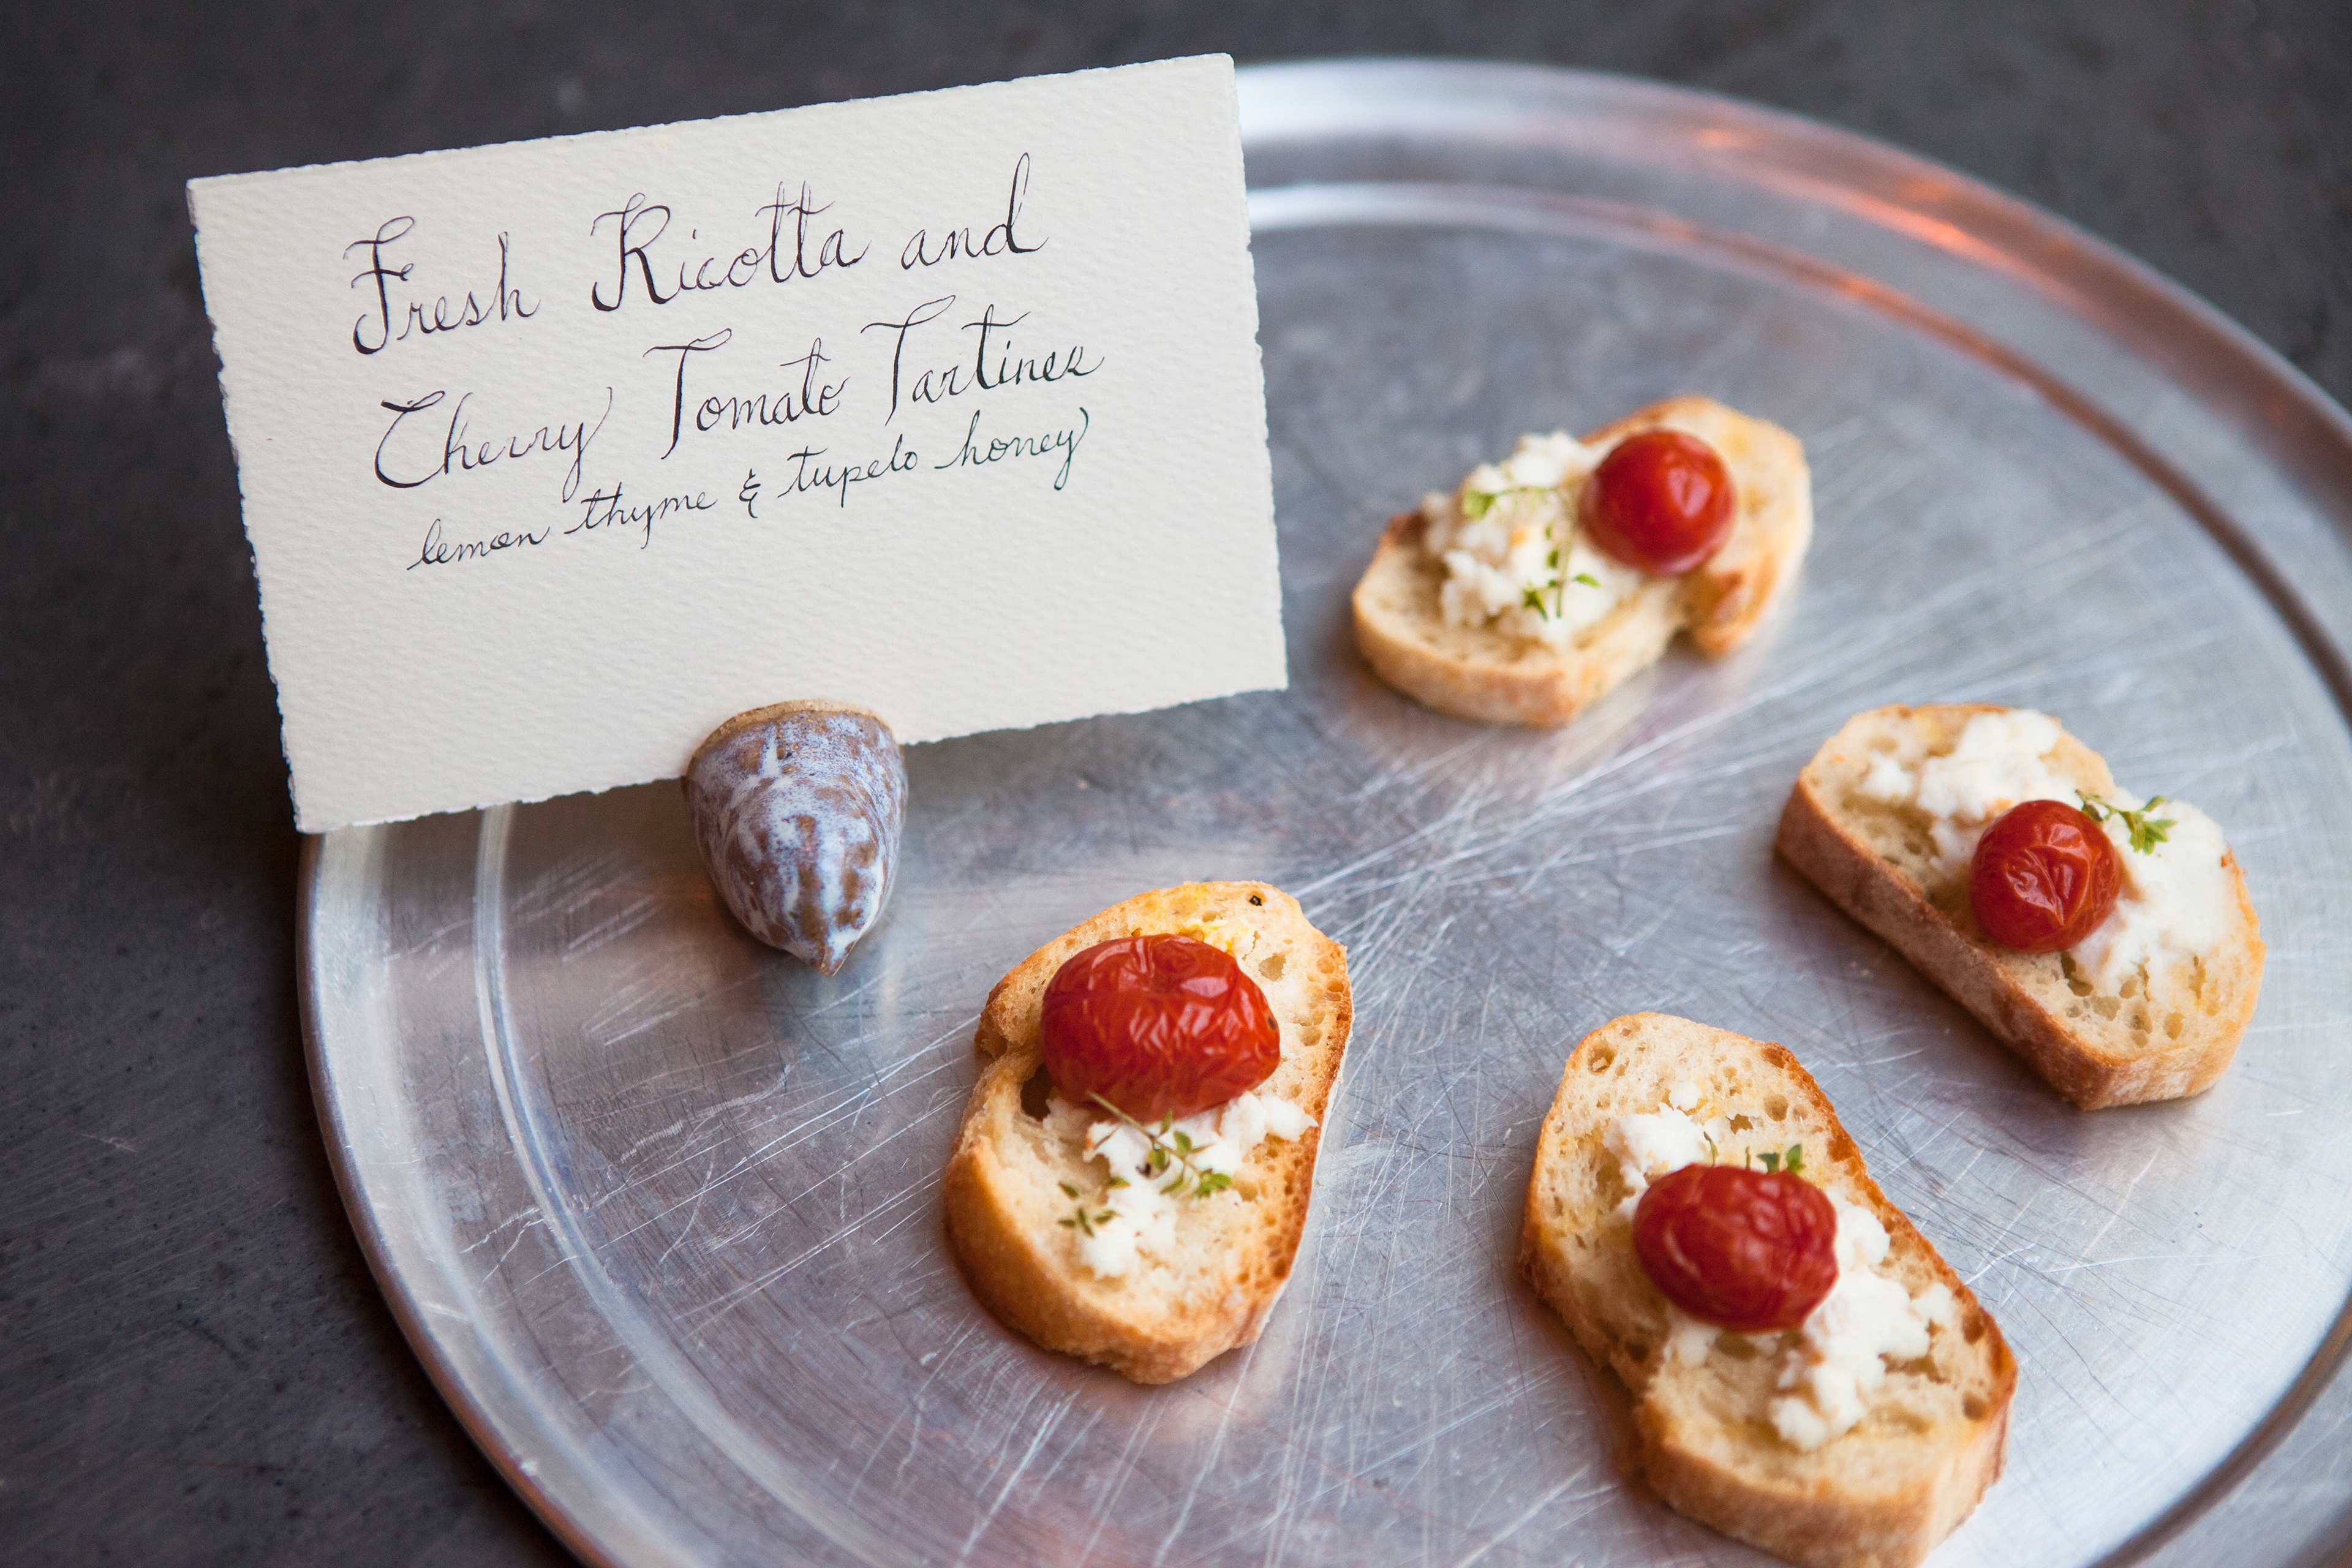 Fresh Ricotta and
Cherry Tomato Tartines
lemon thyme & tupelo honey